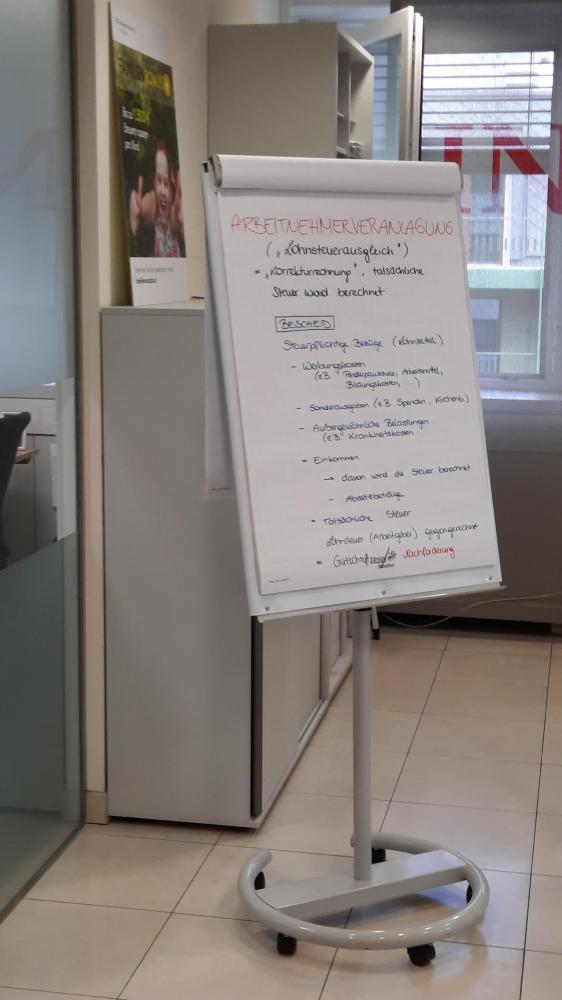 Bis zu 1.500 €
Steuern sparen
pro Kind!
IN
ARBEITNEHMERVERANLAGUNG
(„Lohnsteuerausgleich")
= „Korrekturrechnung", tatsächliche
Steuer wird berechnet
BESCHEID
Steuerpflichtige Bezüge (Lohnzettel)
- Werbungskosten
(z.B. Pendlerpauschale, Arbeitsmittel,
Bildungskosten, ...)
- Sonderausgaben (z.B. Spenden, Kirchenb.)
- Außergewöhnliche Belastungen
(z.B. Krankheitskosten
= Einkommen
→ davon wird die Steuer berechnet
- Absetzbeträge
= Tatsächliche Steuer
Lohnsteuer (Arbeitgeber) gegengerechnet
= Gutschrift Nachforderung